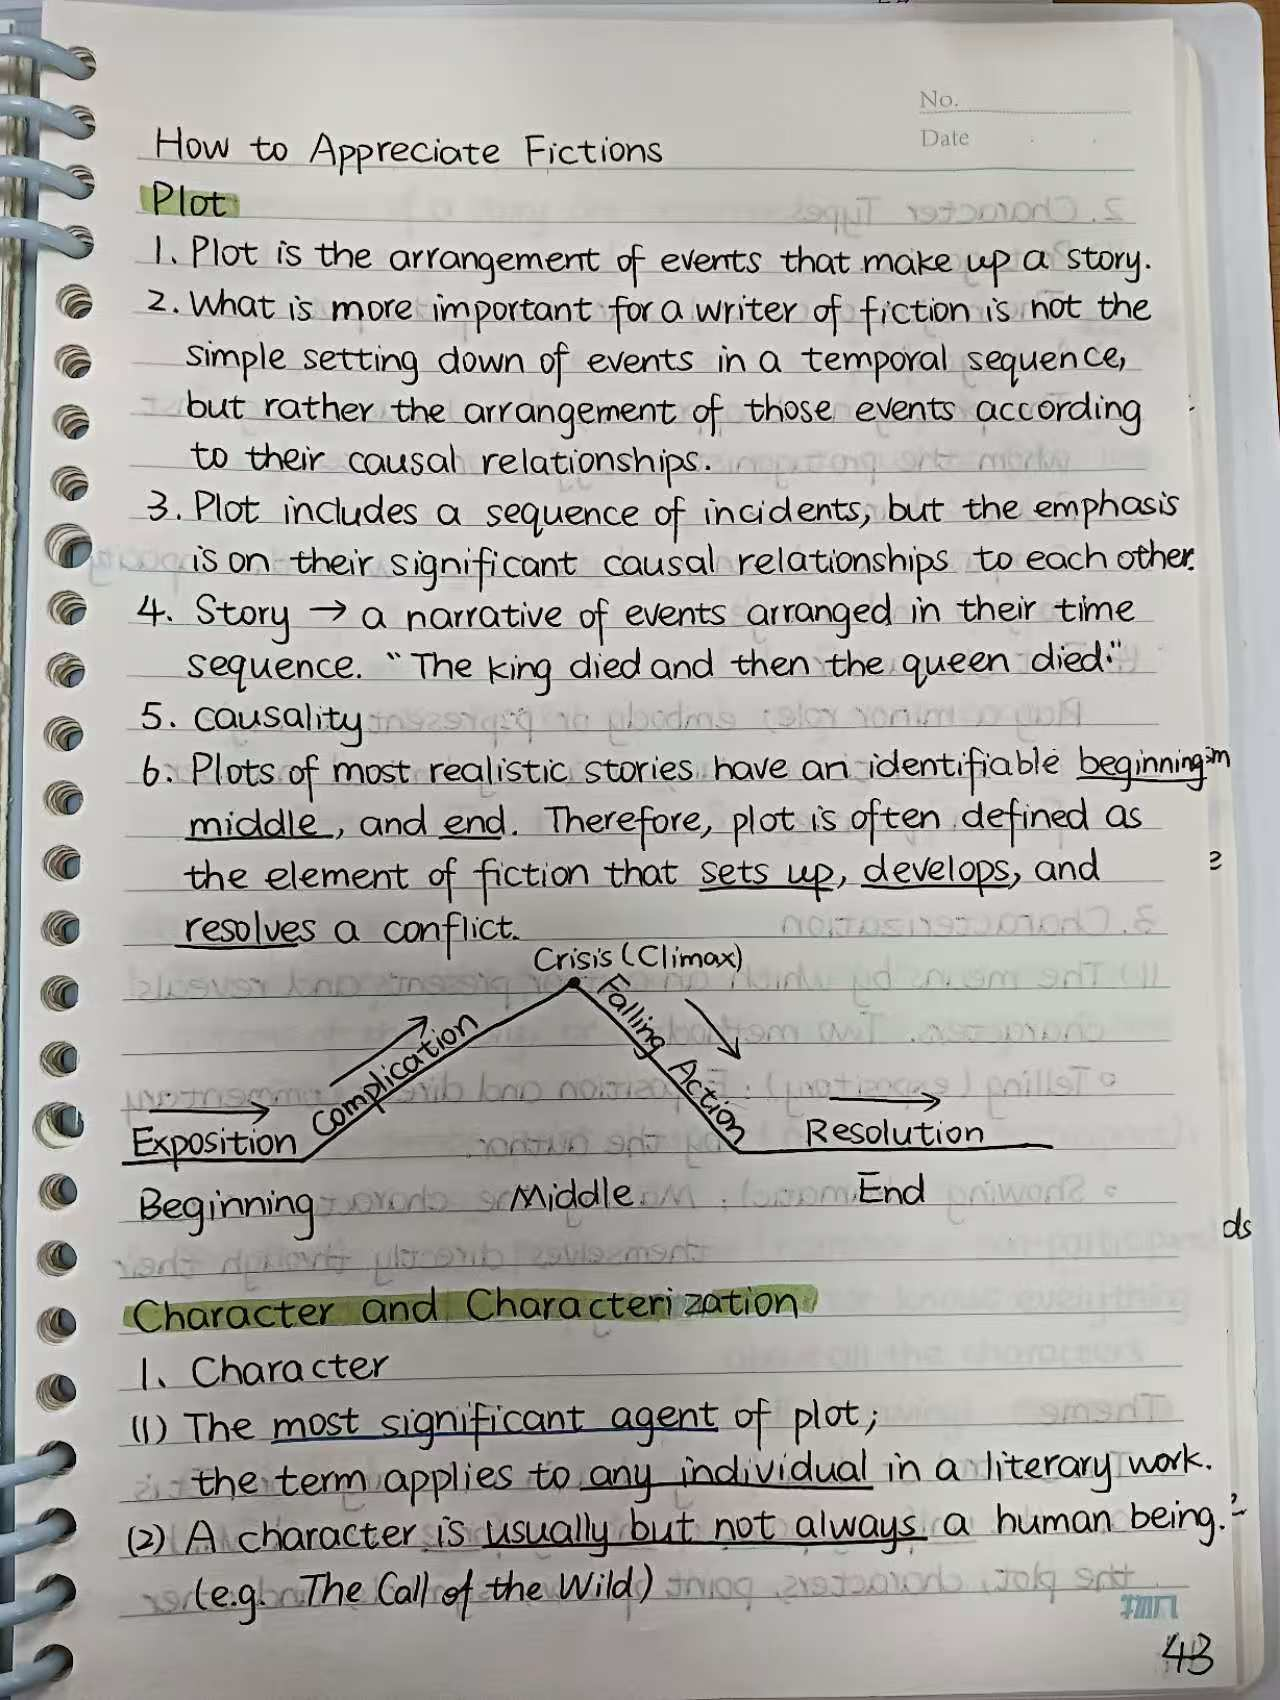 No.
Date
How to Appreciate Fictions
Plot
1. Plot is the arrangement of events that make up a story.
2. What is more important for a writer of fiction is not the
simple setting down of events in a temporal sequence,
but rather the arrangement of those events according
to their causal relationships.
3. Plot includes a sequence of incidents, but the emphasis
is on their significant causal relationships to each other.
4. Story → a narrative of events arranged in their time
sequence. "The king died and then the queen died."
5. causality
6. Plots of most realistic stories have an identifiable beginning
middle, and end. Therefore, plot is often defined as
the element of fiction that sets up, develops, and
resolves a conflict.
Crisis (Climax)
Complication
Falling Action
Exposition
Resolution
Beginning
Middle
End
ds
Character and Characterization
1. Character
(1) The most significant agent of plot;
the term applies to any individual in a literary work.
(2) A character is usually but not always a human being.
(e.g. The Call of the Wild)
43